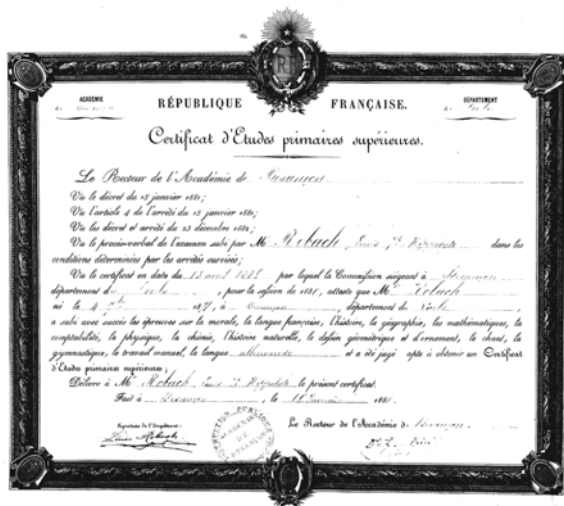 RF
ACADÉMIE
DÉPARTEMENT
RÉPUBLIQUE FRANÇAISE.
Certificat d'Etudes primaires supérieures.
Le Recteur de l'Académie de Besançon
Vu le décret du 15 janvier 1881;
Vu l'article 4 de l'arrêté du 15 janvier 1881;
Vu les décret et arrêté du 23 décembre 1882;
Vu le procès-verbal de l'examen subi par M Rebach Louis Hippolyte dans les
conditions déterminées par les arrêtés susvisés;
Vu le certificat en date du par lequel la Commission siégeant à Besançon
département d Doubs, pour la session de atteste que M Rebach
né le 4 à Besançon, département de Doubs,
a subi avec succès les épreuves sur la morale, la langue française, l'histoire, la géographie, les mathématiques, la
comptabilité, la physique, la chimie, l'histoire naturelle, le dessin géométrique et d'ornement, le chant, la
gymnastique, le travail manuel, la langue allemande et a été jugé apte à obtenir un Certificat
d'Etudes primaires supérieures;
Délivre à M Rebach Louis Hippolyte le présent certificat.
Fait à Besançon, le
Signature de l'Impétrant:
Le Recteur de l'Académie de Besançon
Louis Rebach
ACADÉMIE
DE
BESANÇON